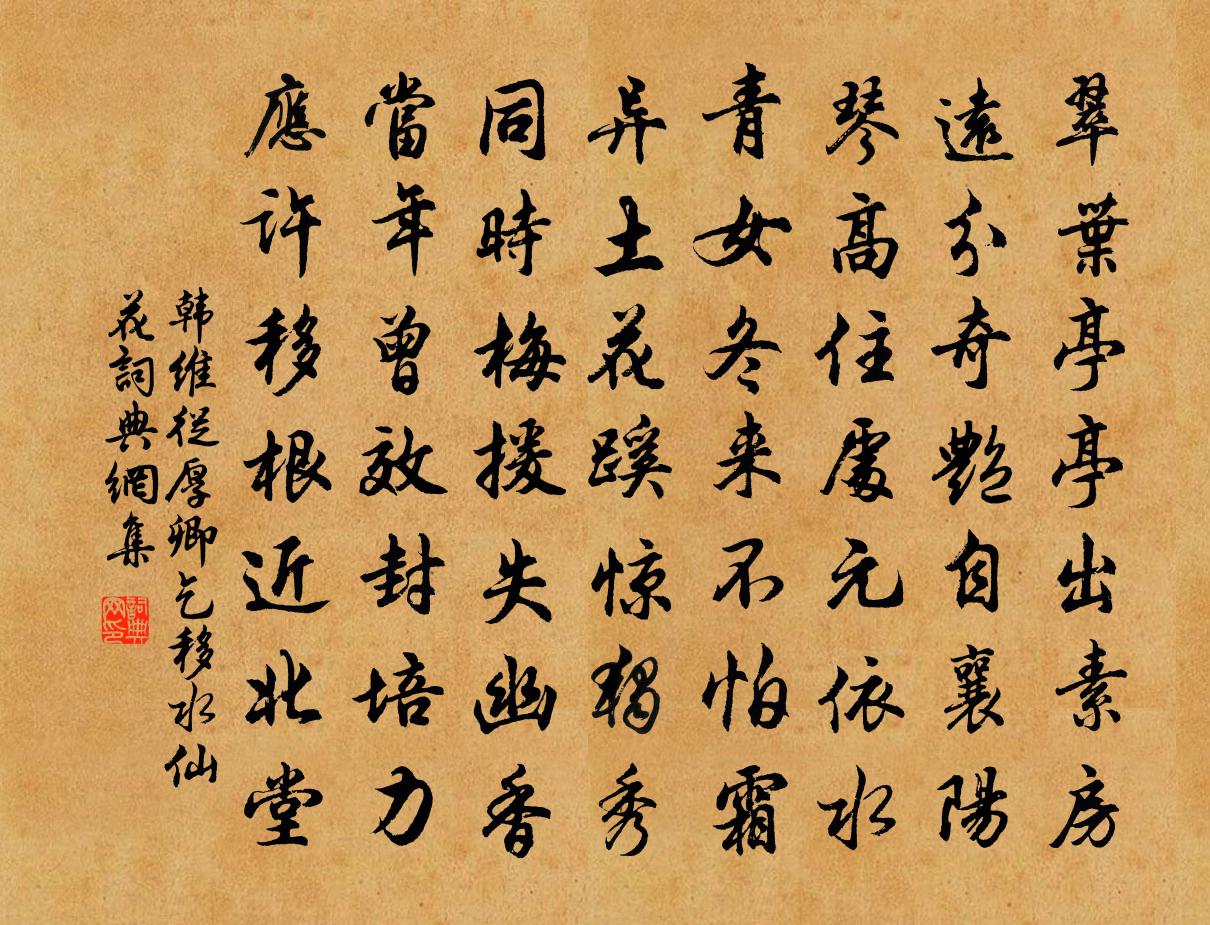 翠葉亭亭出素房
遠分奇艷自襄陽
琴高住處元依水
青女冬来不怕霜
异土花蹊惊獨秀
同時梅援失幽香
當年曾效封培力
應許移根近北堂
韩維從厚卿乞移水仙
花詞典網集
詞典网印